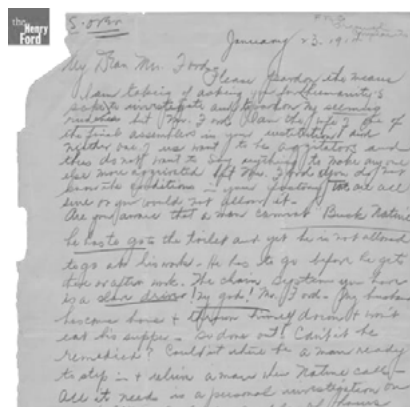 the
Henry
Ford
January 23. 1914
My Dear Mr. Ford—
Please pardon the means
I am taking of asking you for humanity's
sake to investigate and to pardon my seeming
rudeness but Mr. Ford I am the wife of one of
the final assemblers in your institution and
neither one of us want to be agitators and
thus do not want to say anything to make any one
else more aggrivated but Mr. Ford you do not
know the conditions in your factory we are all
sure or you would not allow it.
Are you aware that a man cannot "Buck Nature"
he has to go to the toilet and yet he is not allowed
to go at his work. He has to go before he gets
there or after work. The chain system you have
is a slave driver! My God! Mr. Ford. My husband
has come home & thrown himself down & won't
eat his supper — so done out! Can't it be
remedied? Couldn't there be a man ready
to step in & relieve a man when Nature calls.
All it needs is a personal investigation on
hours